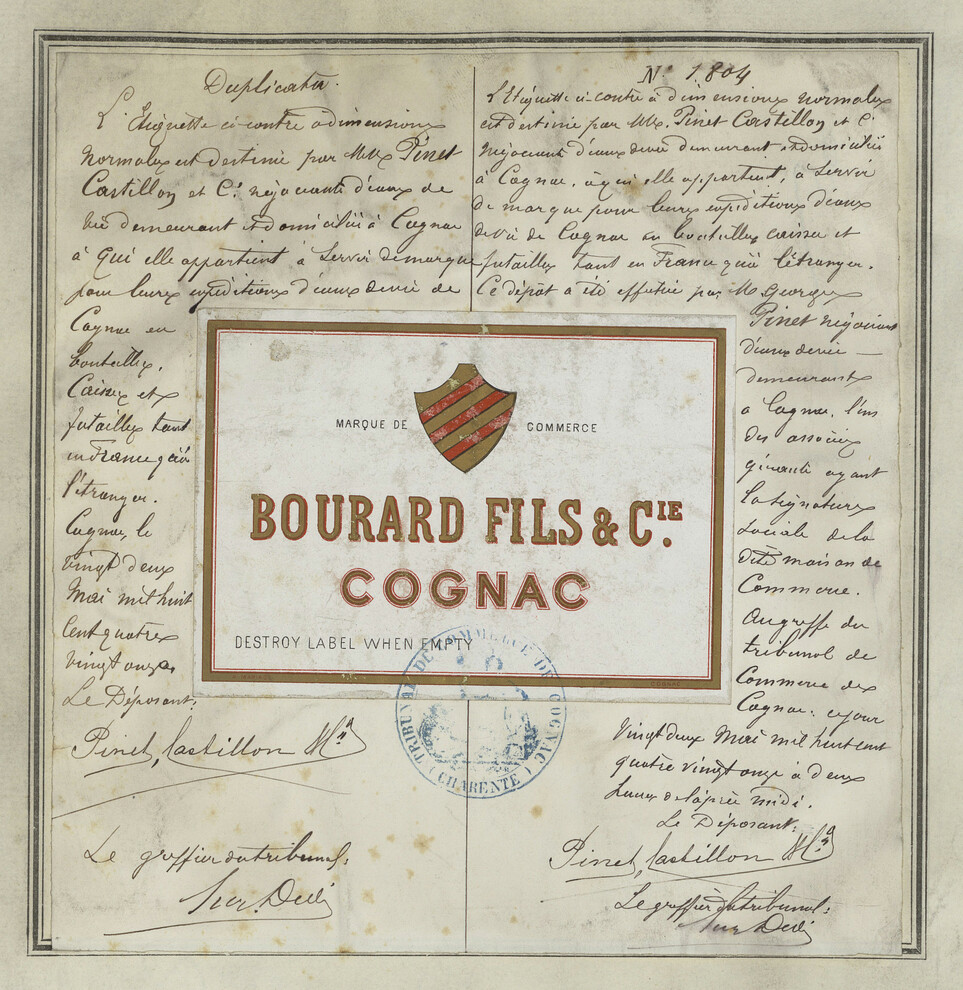 Duplicata.
L'Etiquette ci-contre à dimensions
normales est destinée par MM. Pinet
Castillon et Cie négociants d'eaux de
vie demeurant et domiciliés à Cognac
à qui elle appartient à servir de marque
pour leurs expéditions d'eaux de vie de
Cognac en
bouteilles,
Caisses et
futailles tant
en France qu'à
l'étranger.
Cognac, le
vingt deux
Mai mil huit
cent quatre
vingt onze.
Le Déposant:
Pinet, Castillon &Cie
Le greffier du tribunal:
N° 1.804
L'Etiquette ci-contre à dimensions normales
est destinée par MM. Pinet Castillon et Cie
Négociants d'eaux de vie demeurant et domiciliés
à Cognac, à qui elle appartient, à servir
de marque pour leurs expéditions d'eaux
de vie de Cognac en bouteilles caisses et
futailles tant en France qu'à l'étranger.
Ce dépôt a été effectué par M. Georges
Pinet négociant
d'eaux de vie
demeurant
à Cognac, l'un
des associés
gérants ayant
la signature
sociale de la
dite maison de
Commerce.
Au greffe du
tribunal de
Commerce de
Cognac, ce jour
vingt deux Mai mil huit cent
quatre vingt onze à deux
heures de l'après midi.
Le Déposant:
Pinet, Castillon &Cie
Le greffier du tribunal:
MARQUE DE COMMERCE
BOURARD FILS & CIE.
COGNAC
DESTROY LABEL WHEN EMPTY
COGNAC
TRIBUNAL DU COMMERCE DE COGNAC
(CHARENTE)